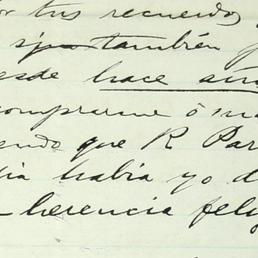 or tus recuerdos y
también
desde hace
comprarme ó
endo que R Par
ia habia yo d
herencia